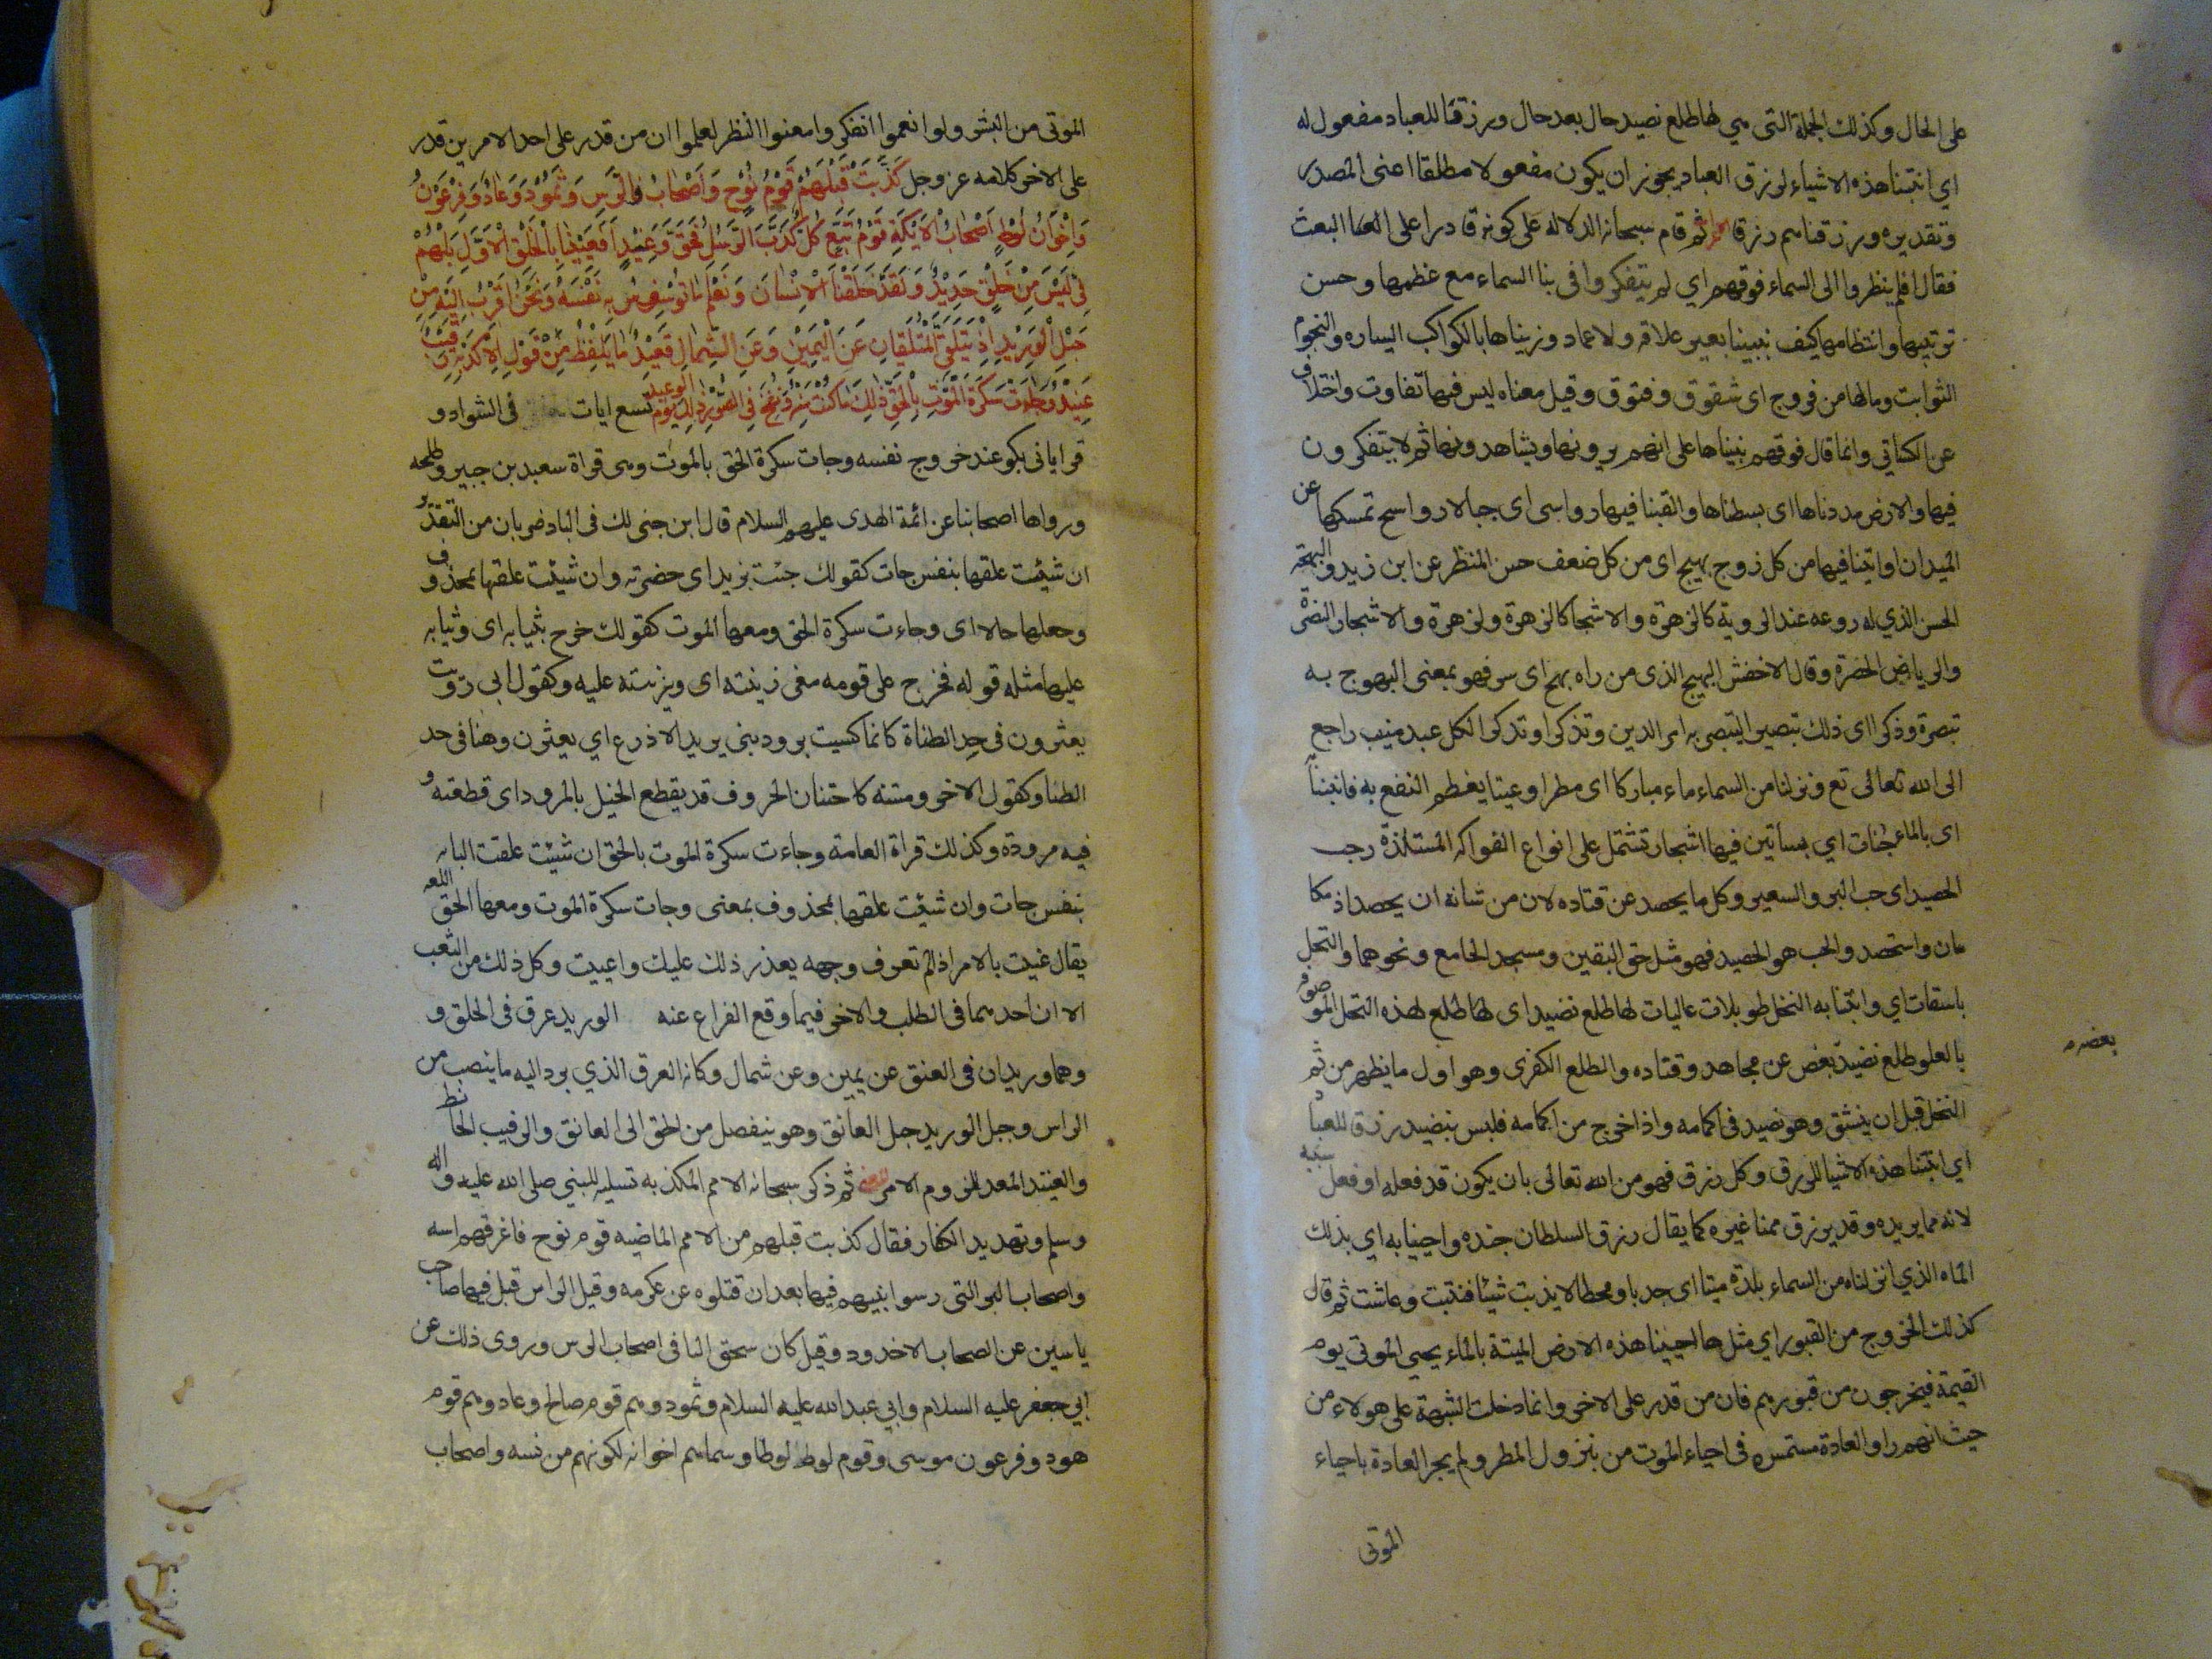 على الحال وكذلك الجملة التى هي لها طلع نضيد حال بعد حال ورزقنا للعباد مفعول له
اي انبتنا هذه الاشياء لرزق العباد يجوز ان يكون مفعولا مطلقا اعنى المصدر
وتقديره ورزقناهم رزقا ثم قام سبحانه الدلاله على كونه قادرا على البعث
فقال افلم ينظروا الى السماء فوقهم اي لم يتفكروا فى بنا السماء مع عظمها وحسن
ترتيبها وانتظامها كيف بنينا بغير علاقه ولا عماد وزيناها بالكواكب السياره والنجوم
الثوابت ومالها من فروج اى شقوق وفتوق وقيل معناه ليس فيها تفاوت واختلاف
عن الكسائي وانما قال فوقهم بنيناها على انهم يرونها ويشاهدونها ثم لا يتفكرون
فيها والارض مددناها اى بسطناها والقينا فيها رواسى اى جبالا رواسخ تمسكها عن
الميدان وانبتنا فيها من كل زوج بهيج اى من كل ضعف حسن المنظر عن ابن زيد والبهجة
الحسن الذي له روعه عند الروية كالزهرة والاشجار النضرة
والرياض الخضرة وقال الاخفش البهيج الذى من راه بهج اى سر فهو بمعنى المبهوج به
تبصرة وذكرا اى ذلك تبصيرا ليتبصر به امر الدين وتذكرا وتذكرا لكل عبد منيب راجع
الى الله تعالى تع ونزلنا من السماء ماء مباركا اى مطرا وغيثا يعظم النفع به فانبتنا
اى بالماء جنات اي بساتين فيها اشجار تشتمل على انواع الفواكه المستلذة وحب
الحصيد اى حب البر والشعير وكل ما يحصد عن قتاده لان من شانه ان يحصد اذ تكا
مل واستحصد والحب هو الحصيد فهو مثل حق اليقين ومسجد الجامع ونحوهما والنخل
باسقات اي وانبتنا به النخل طويلات عاليات لها طلع نضيد اى لها طلع لهذه النخل الموصوفه
بالعلو طلع نضيد بعض عن مجاهد وقتاده والطلع الكفرى وهو اول ما يظهر من ثم
بعضه م
النخل قبل ان ينشق وهو نضيد فى اكمامه واذا خرج من اكمامه فليس بنضيد رزقا للعباد
اي انبتنا هذه الاشيا للرزق وكل رزق فهو من الله تعالى بان يكون قد فعله او فعل سببه
لانه مما يريده وقد يرزق ممنا غيره كما يقال رزق السلطان جنده واحيينا به اي بذلك
الماء الذي انزلناه من السماء بلدة ميتا اى جدبا وقحطا لا ينبت شيئا فنبتت وعاشت ثم قال
كذلك الخروج من القبور اي مثل ما احيينا هذه الارض الميتة بالماء يحيي الموتى يوم
القيمة فيخرجون من قبورهم فان من قدر على الاخر وانما دخلت الشبهة على هولاء من
حيث انهم راوا العادة مستمره فى احياء الموت من نزول المطر ولم يجر العادة باحياء
الموتى
الموتى من البشر ولو انعموا الفكر وامعنوا النظر لعلموا ان من قدر على احد الامرين قدر
على الاخر كلامه عز وجل كَذَّبَتْ قَبْلَهُمْ قَوْمُ نُوْحٍ وَاَصْحَابُ الرَّسِ وَثَمُوْدُ وَعَادٌ وَفِرْعَوْنُ
وَاِخْوَانُ لُوْطٍ اَصْحَابُ الْاَيْكَةِ قَوْمُ تُبَّعٍ كُلٌّ كَذَّبَ الرُّسُلَ فَحَقَّ وَعِيْدِ اَفَعَيِيْنَا بِالْخَلْقِ الْاَوَّلِ بَلْ هُمْ
فِى لَبْسٍ مِنْ خَلْقٍ جَدِيْدٍ وَلَقَدْ خَلَقْنَا الْاِنْسَانَ وَنَعْلَمُ مَا تُوَسْوِسُ بِهِ نَفْسُهُ وَنَحْنُ اَقْرَبُ اِلَيْهِ مِنْ
حَبْلِ الْوَرِيْدِ اِذْ يَتَلَقَّى الْمُتَلَقِّيَانِ عَنِ الْيَمِيْنِ وَعَنِ الشِّمَالِ قَعِيْدٌ مَا يَلْفِظُ مِنْ قَوْلٍ اِلَّا لَدَيْهِ رَقِيْبٌ
عَتِيْدٌ وَجَاءَتْ سَكْرَةُ الْمَوْتِ بِالْحَقِّ ذٰلِكَ مَا كُنْتَ مِنْهُ تَحِيْدُ وَنُفِخَ فِى الصُّوْرِ ذٰلِكَ يَوْمُ الوعيد تسع ايات فى الشواد و
قرا ابى بكر عند خروج نفسه وجات سكرة الحق بالموت وهى قراة سعيد بن جبير وطلحه
ورواها اصحابنا عن ائمة الهدى عليهم السلام قال ابن جنى لك فى البا ضربان من التقدير
ان شيئت علقها بنفس جات كقولك جئت بزيد اى حضرته وان شيئت علقها بمحذوف
وجعلها حالا اى وجاءت سكرة الحق ومعها الموت كقولك خرج بثيابه اى وثيابه
عليها مثله قوله فخرج على قومه فى زينته اى وزينته عليه وكقول ابي ذويب
يعثرون فى حد الظباة كانما كسيت برود بنى يزيد الاذرع اي يعثرن وهنا فى حد
الظبا وكقول الاخر ومستنه كاستنان الخروف قد يقطع الحبل بالمرود اى قطعته و
فيه مروده وكذلك قراة العامة وجاءت سكرة الموت بالحق ان شيئت علقت البا
بنفس جات وان شيئت علقها بمحذوف بمعنى وجات سكرة الموت ومعها الحق اللغه
يقال عييت بالامر اذا لم تعرف وجهه يعذر ذلك عليك واعييت وكل ذلك من التعب
الا ان احدهما فى الطلب والاخر فيما وقع الفراغ عنه الوريد عرق فى الحلق و
وهما وريدان فى العنق عن يمين وعن شمال وكانه العرق الذي يرد اليه ما ينصب من
الراس وحبل الوريد حبل العاتق وهو ينفصل من الحق الى العاتق والرقيب الحافظ
والعتيد المعد للزوم الامر المعنى ثم ذكر سبحانه الامم المكذبه تسليه للنبي صلى الله عليه واله
وسلم وتهديد الكفار فقال كذبت قبلهم من الامم الماضيه قوم نوح فاغرقهم الله
واصحاب البر التى رسوا نبيهم فيها بعد ان قتلوه عن عكرمه وقيل الراس قيل فيها صاحب
ياسين عن اصحاب الاخدود وقيل كان سحق النسا فى اصحاب الرس وروى ذلك عن
ابي جعفر عليه السلام وابي عبد الله عليه السلام وثمود وهم قوم صالح وعاد وهم قوم
هود وفرعون موسى وقوم لوط لوطا وسماهم اخوانه لكونهم من نسه واصحاب